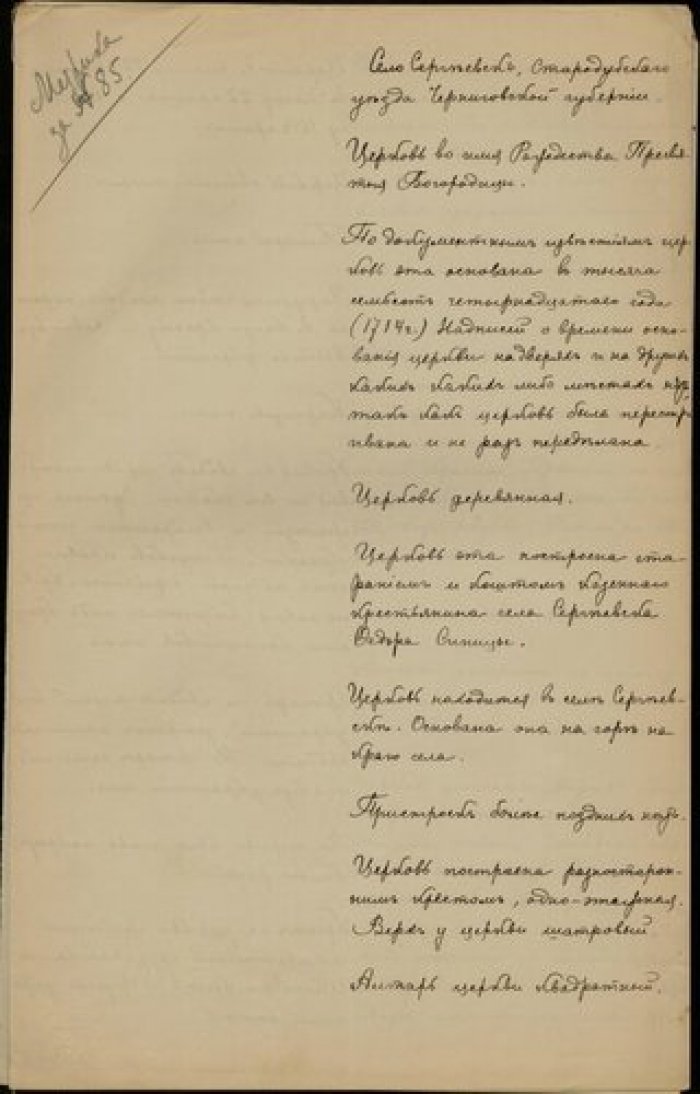 Метрика
за № 85
Село Сергѣевскъ, Стародубскаго
уѣзда Черниговской губерніи.
Церковь во имя Рождества Пресвя-
тыя Богородицы.
По документнымъ извѣстіямъ цер-
ковь эта основана въ тысяча
семьсотъ четырнадцатаго года
(1714 г.) Надписей о времени осно-
ванія церкви на дверяхъ и на другихъ
какихъ либо мѣстахъ нѣтъ,
такъ какъ церковь была перестра-
ивана и не разъ передѣлана.
Церковь деревянная.
Церковь эта построена ста-
раніемъ и коштомъ казеннаго
крестьянина села Сергѣевска
Ѳедора Синицы.
Церковь находится въ селѣ Сергѣев-
скѣ. Основана она на горѣ на
краю села.
Пристроекъ болѣе позднихъ нѣтъ.
Церковь построена равносторон-
нимъ крестомъ, одно-этажная.
Верхъ у церкви шатровый
Алтарь церкви квадратный.